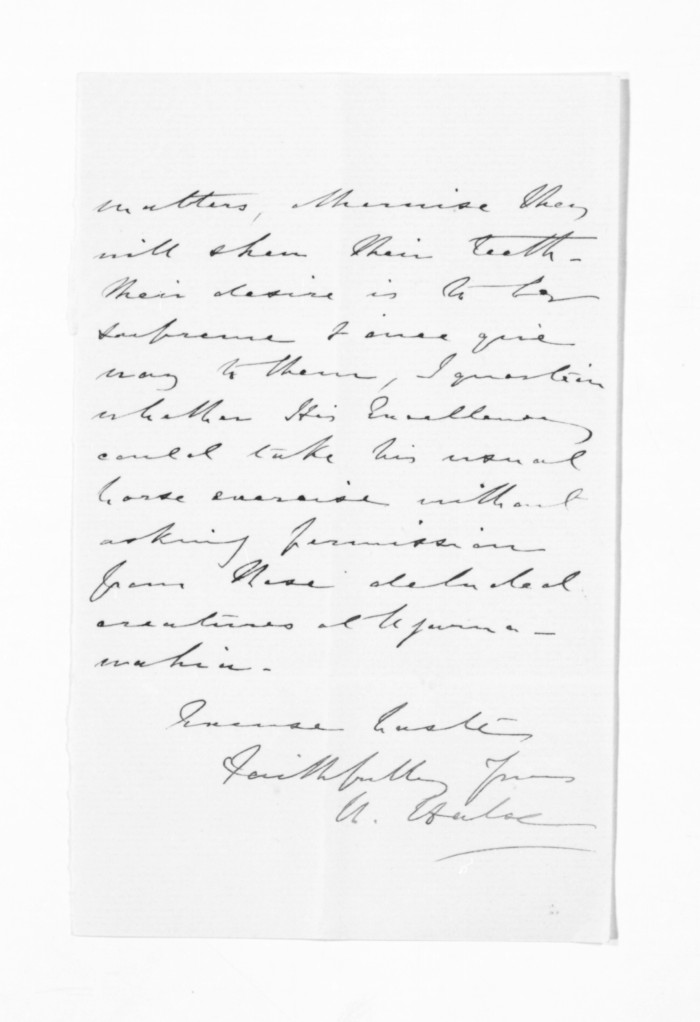 matters, otherwise they
will shew their teeth -
their desire is to be
supreme & once give
way to them, I question
whether His Excellency
could take his usual
horse exercise without
asking permission
from these deluded
creatures at Ngarua-
wahia -
Excuse haste
Faithfully Yours
H. Halse